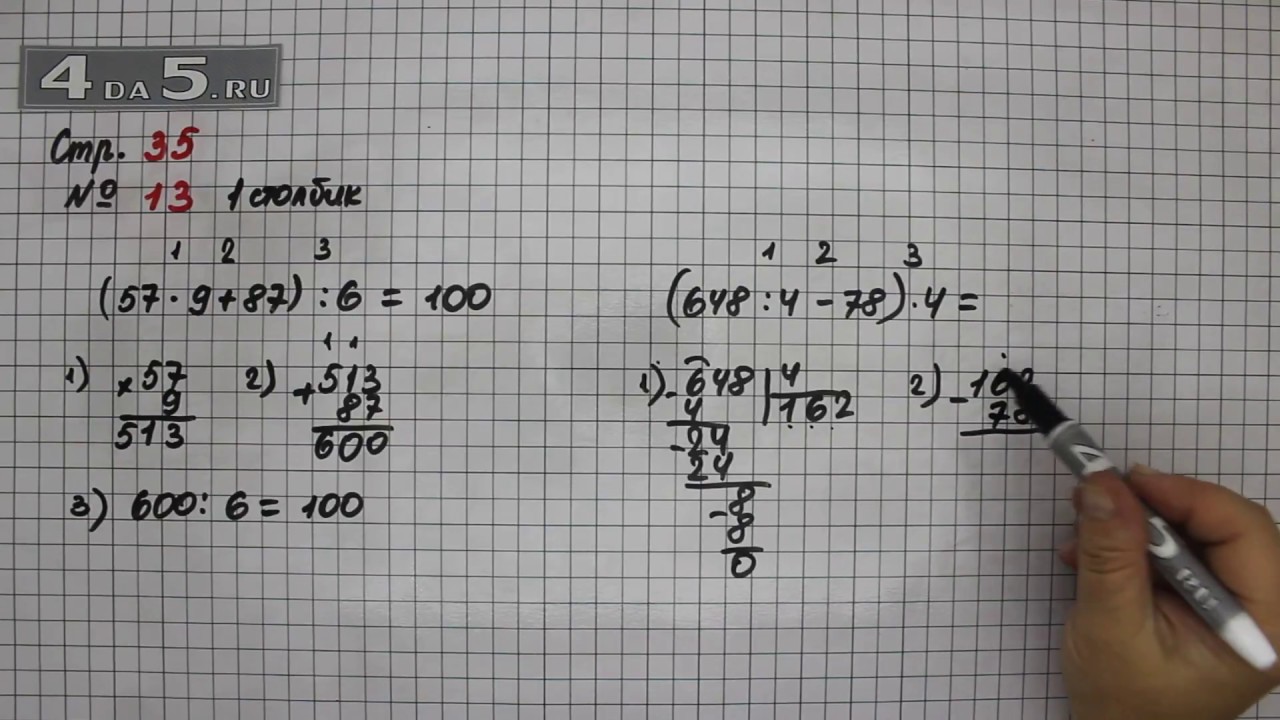 4 DA 5.RU
Стр. 35
№ 13 1 столбик
1 2 3
(57 · 9 + 87) : 6 = 100
1) × 57
9
513
2) 1 1
+ 513
87
600
3) 600 : 6 = 100
1 2 3
(648 : 4 - 78) · 4 =
1) - 648 | 4
4 162
- 24
24
8
- 8
0
2) - 16
7